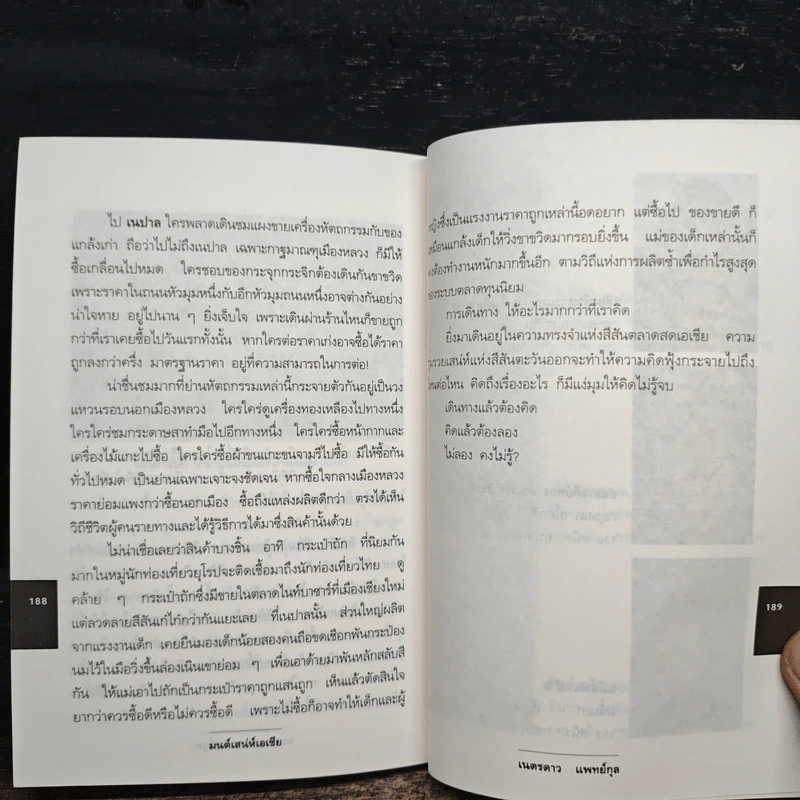 ไป เนปาล ใครพลาดเดินชมแผงขายเครื่องหัตถกรรมกับของ
แกล้งเก่า ถือว่าไปไม่ถึงเนปาล เฉพาะกาฐมาณฑุเมืองหลวง ก็มีให้
ซื้อเกลื่อนไปหมด ใครชอบของกระจุกกระจิกต้องเดินกันขาขวิด
เพราะราคาในถนนหัวมุมหนึ่งกับอีกหัวมุมถนนหนึ่งอาจต่างกันอย่าง
น่าใจหาย อยู่ไปนาน ๆ ยิ่งเจ็บใจ เพราะเดินผ่านร้านไหนก็ขายถูก
กว่าที่เราเคยซื้อไปวันแรกทั้งนั้น หากใครต่อราคาเก่งอาจซื้อได้ราคา
ถูกลงกว่าครึ่ง มาตรฐานราคา อยู่ที่ความสามารถในการต่อ!
น่าชื่นชมมากที่ย่านหัตถกรรมเหล่านี้กระจายตัวกันอยู่เป็นวง
แหวนรอบนอกเมืองหลวง ใครใคร่ดูเครื่องทองเหลืองไปทางหนึ่ง
ใครใคร่ชมกระดาษสาทำมือไปอีกทางหนึ่ง ใครใคร่ซื้อหน้ากากและ
เครื่องไม้แกะไปซื้อ ใครใคร่ซื้อผ้าขนแกะขนจามรีไปซื้อ มีให้ซื้อกัน
ทั่วไปหมด เป็นย่านเฉพาะเจาะจงชัดเจน หากซื้อใจกลางเมืองหลวง
ราคาย่อมแพงกว่าซื้อนอกเมือง ซื้อถึงแหล่งผลิตดีกว่า ตรงได้เห็น
วิถีชีวิตผู้คนรายทางและได้รู้วิธีการได้มาซึ่งสินค้านั้นด้วย
ไม่น่าเชื่อเลยว่าสินค้าบางชิ้น อาทิ กระเป๋าถัก ที่นิยมกัน
มากในหมู่นักท่องเที่ยวยุโรปจะติดเชื้อมาถึงนักท่องเที่ยวไทย ดู
คล้าย ๆ กระเป๋าถักซึ่งมีขายในตลาดไนท์บาซาร์ที่เมืองเชียงใหม่
แต่ลวดลายสีสันเก๋ไก๋กว่ากันแยะเลย ที่เนปาลนั้น ส่วนใหญ่ผลิต
จากแรงงานเด็ก เคยยืนมองเด็กน้อยสองคนถือขดเชือกพันกระป๋อง
นมไว้ในมือวิ่งขึ้นล่องเนินเขาย่อม ๆ เพื่อเอาด้ายมาพันหลักสลับสี
กัน ให้แม่เอาไปถักเป็นกระเป๋าราคาถูกแสนถูก เห็นแล้วตัดสินใจ
ยากว่าควรซื้อดีหรือไม่ควรซื้อดี เพราะไม่ซื้อก็อาจทำให้เด็กและผู้
188
มนต์เสน่ห์เอเชีย
หญิงซึ่งเป็นแรงงานราคาถูกเหล่านี้อดอยาก แต่ซื้อไป ของขายดี ก็
เหมือนแกล้งเด็กให้วิ่งขาขวิดมากรอบยิ่งขึ้น แม่ของเด็กเหล่านั้นก็
ต้องทำงานหนักมากขึ้นอีก ตามวิถีแห่งการผลิตซ้ำเพื่อกำไรสูงสุด
ของระบบตลาดทุนนิยม
การเดินทาง ให้อะไรมากกว่าที่เราคิด
ยิ่งมาเดินอยู่ในความทรงจำแห่งสีสันตลาดสดเอเชีย ความ
รุ่มรวยเสน่ห์แห่งสีสันตะวันออกจะทำให้ความคิดฟุ้งกระจายไปถึง
ไหนต่อไหน คิดถึงเรื่องอะไร ก็มีแง่มุมให้คิดไม่รู้จบ
เดินทางแล้วต้องคิด
คิดแล้วต้องลอง
ไม่ลอง คงไม่รู้?
189
เนตรดาว แพทย์กุล